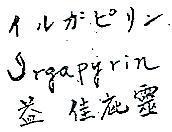 イルガピリン
Irgapyrin
益佳庇靈